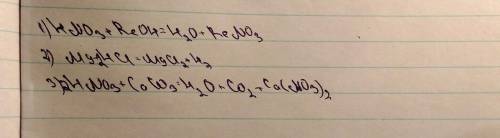 1) HNO3 + ReOH = H2O + ReNO3
2) Mg+2HCl = MgCl2 + H2
3) 2HNO3 + CaCO3 = H2O + CO2 + Ca(NO3)2